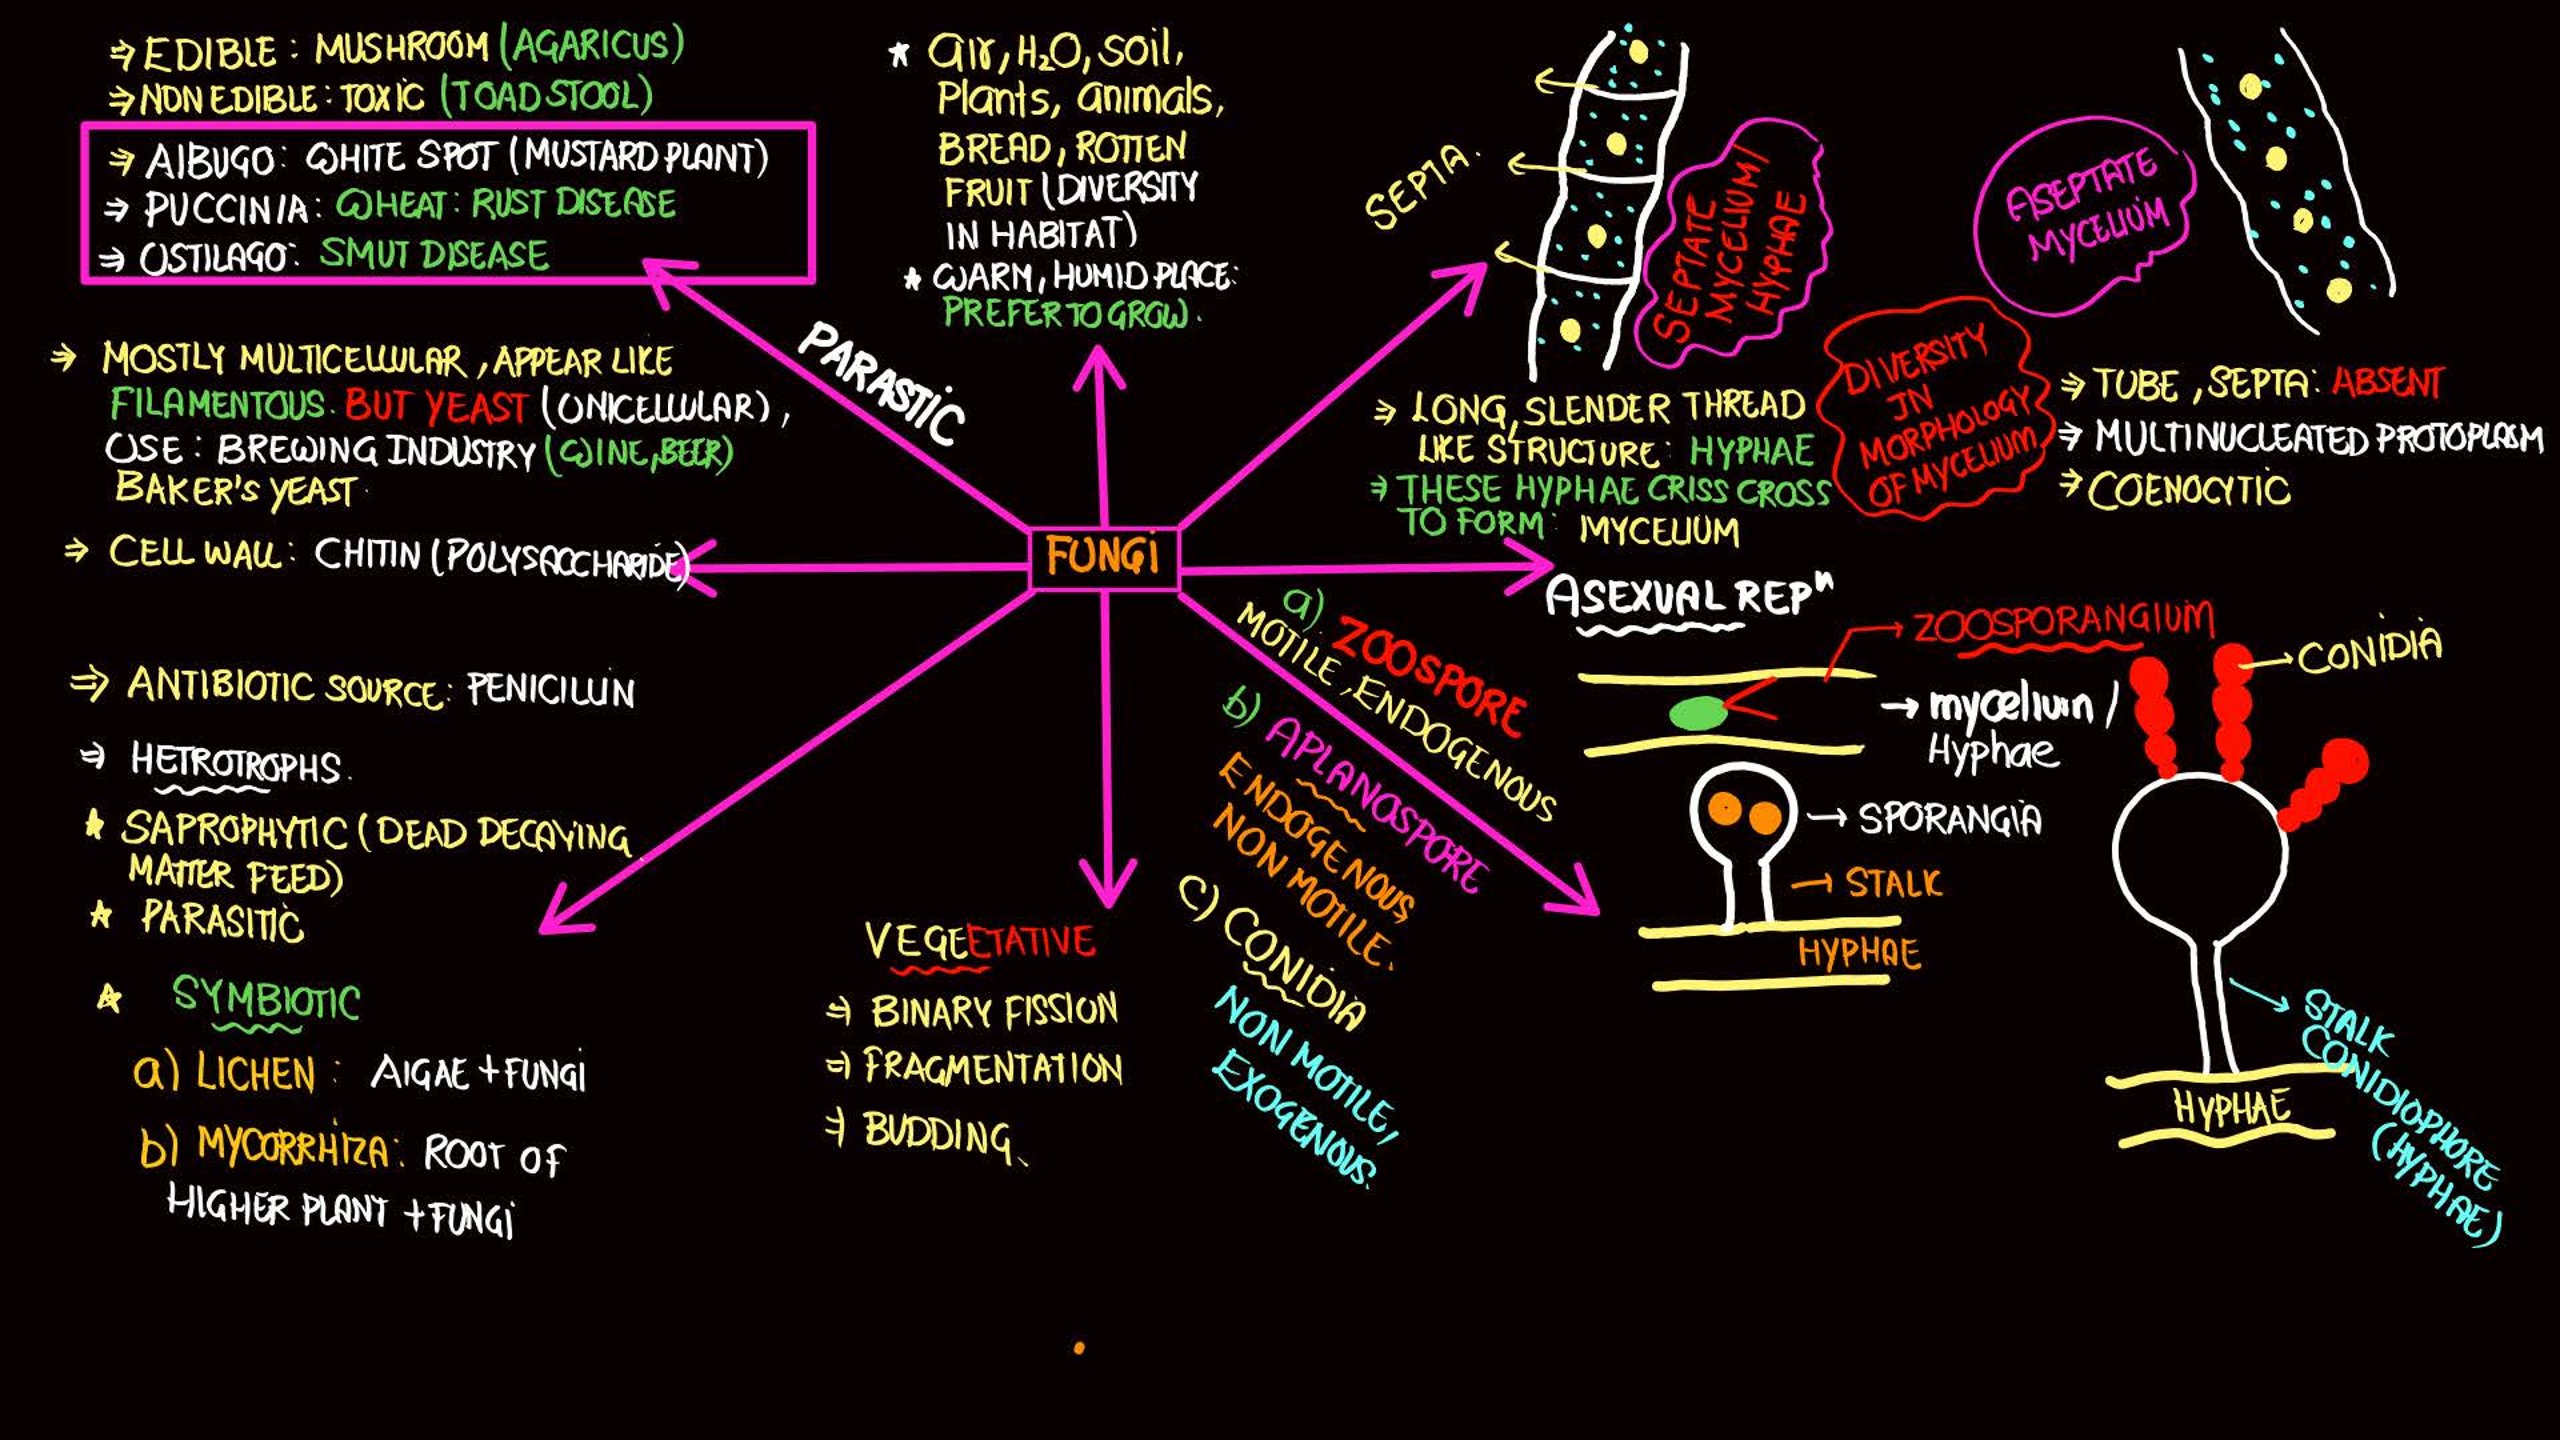 ⇒ EDIBLE : MUSHROOM (AGARICUS)
⇒ NON EDIBLE : TOXIC (TOAD STOOL)
⇒ AlBUGO : WHITE SPOT (MUSTARD PLANT)
⇒ PUCCINIA : WHEAT : RUST DISEASE
⇒ USTILAGO : SMUT DISEASE
PARASTIC
⇒ MOSTLY MULTICELLULAR , APPEAR LIKE
FILAMENTOUS. BUT YEAST (UNICELLULAR) ,
USE : BREWING INDUSTRY (WINE, BEER)
BAKER'S YEAST
⇒ CELL WALL : CHITIN (POLYSACCHARIDE)
⇒ ANTIBIOTIC SOURCE : PENICILLIN
⇒ HETROTROPHS.
* SAPROPHYTIC (DEAD DECAYING
MATTER FEED)
* PARASITIC
* SYMBIOTIC
a) LICHEN : AlGAE + FUNGi
b) MYCORRHIZA : ROOT OF
HIGHER PLANT + FUNGi
* air, H₂O, soil,
Plants, animals,
BREAD, ROTTEN
FRUIT (DIVERSITY
IN HABITAT)
* WARM, HUMID PLACE :
PREFER TO GROW.
FUNGi
VEGEETATIVE
⇒ BINARY FISSION
⇒ FRAGMENTATION
⇒ BUDDING
SEPTA.
SEPTATE
MYCELIUM/
HYPHAE
⇒ LONG, SLENDER THREAD
LIKE STRUCTURE : HYPHAE
⇒ THESE HYPHAE CRISS CROSS
TO FORM : MYCELIUM
DIVERSITY
IN
MORPHOLOGY
OF MYCELIUM
ASEPTATE
MYCELIUM
⇒ TUBE , SEPTA : ABSENT
⇒ MULTINUCLEATED PROTOPLASM
⇒ COENOCYTIC
ASEXUAL REPⁿ
a) ZOOSPORE
MOTILE, ENDOGENOUS
b) APLANOSPORE
ENDOGENOUS,
NON MOTILE.
C) CONIDIA
NON MOTILE,
EXOGENOUS.
→ ZOOSPORANGIUM
→ mycelium /
Hyphae
→ SPORANGIA
→ STALK
HYPHAE
→ CONIDIA
STALK
CONIDIOPHORE
(HYPHAE)
HYPHAE